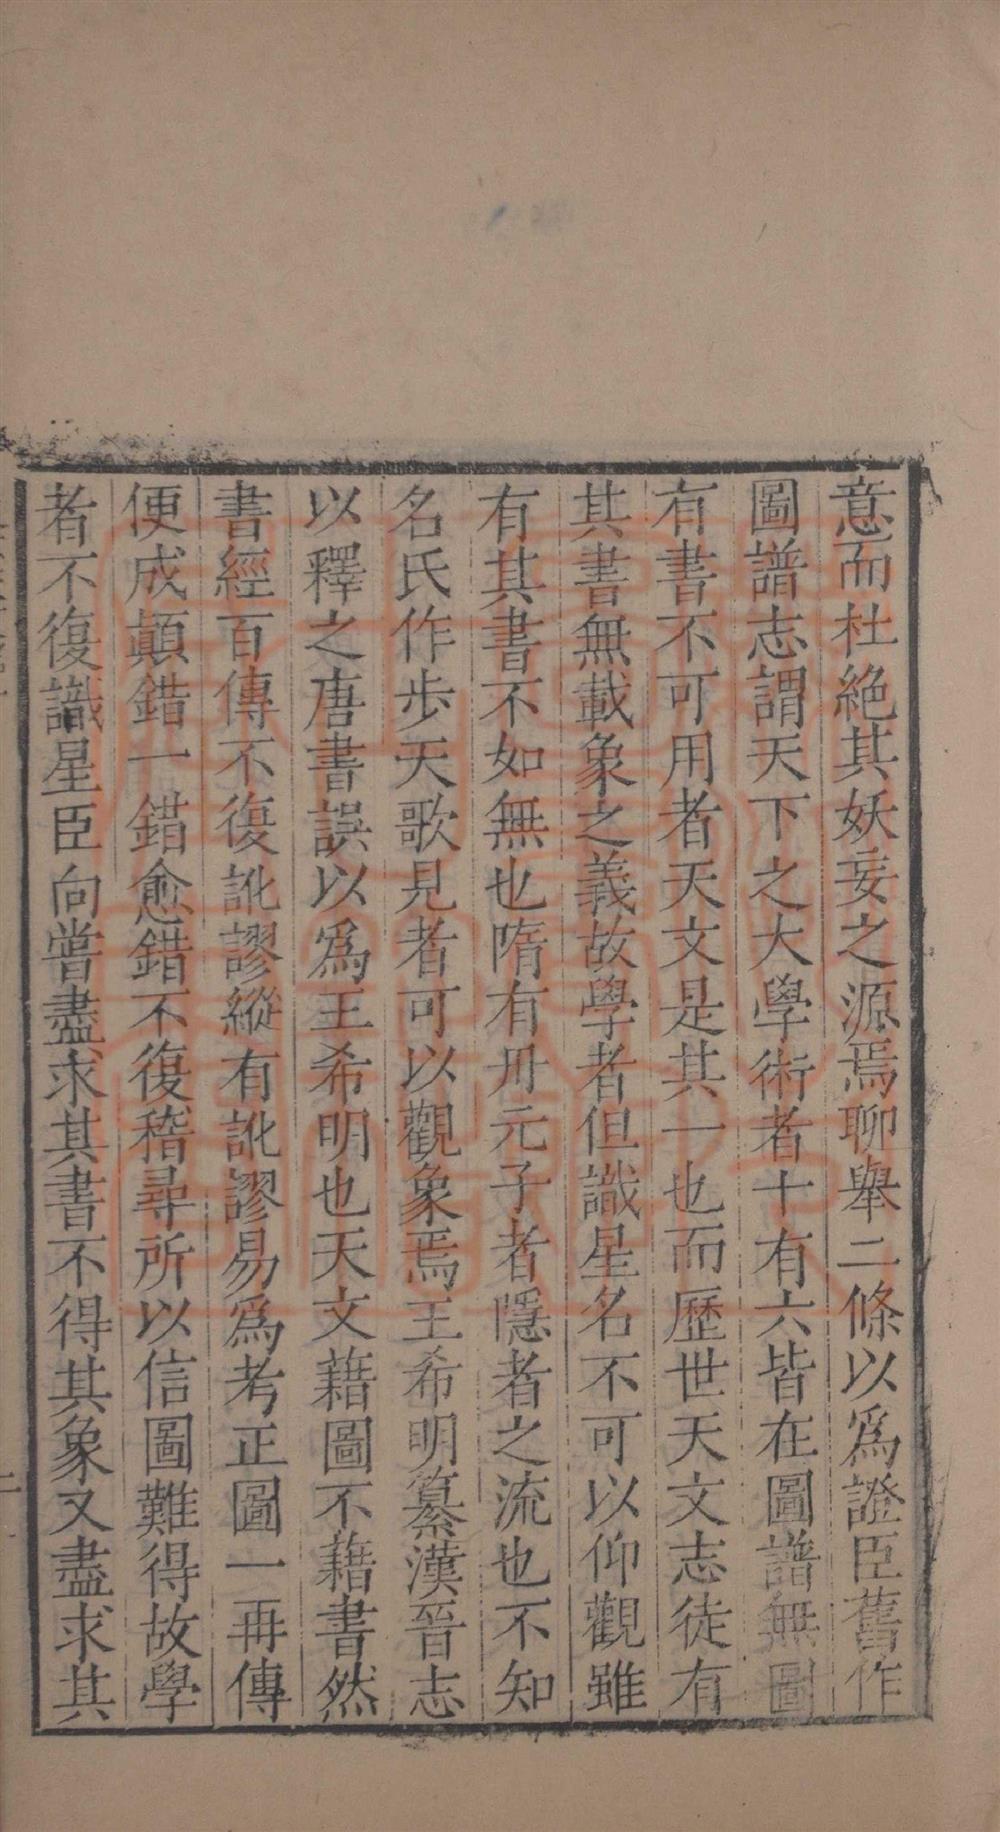 意而杜絶其妖妄之源焉聊舉二條以爲證臣舊作
圖譜志謂天下之大學術者十有六皆在圖譜無圖
有書不可用者天文是其一也而歷世天文志徒有
其書無載象之義故學者但識星名不可以仰觀雖
有其書不如無也隋有丹元子者隱者之流也不知
名氏作歩天歌見者可以觀象焉王希明纂漢晉志
以釋之唐書誤以爲王希明也天文藉圖不藉書然
書經百傳不復訛謬縱有訛謬易爲考正圖一再傳
便成顛錯一錯愈錯不復稽尋所以信圖難得故學
者不復識星臣向嘗盡求其書不得其象又盡求其